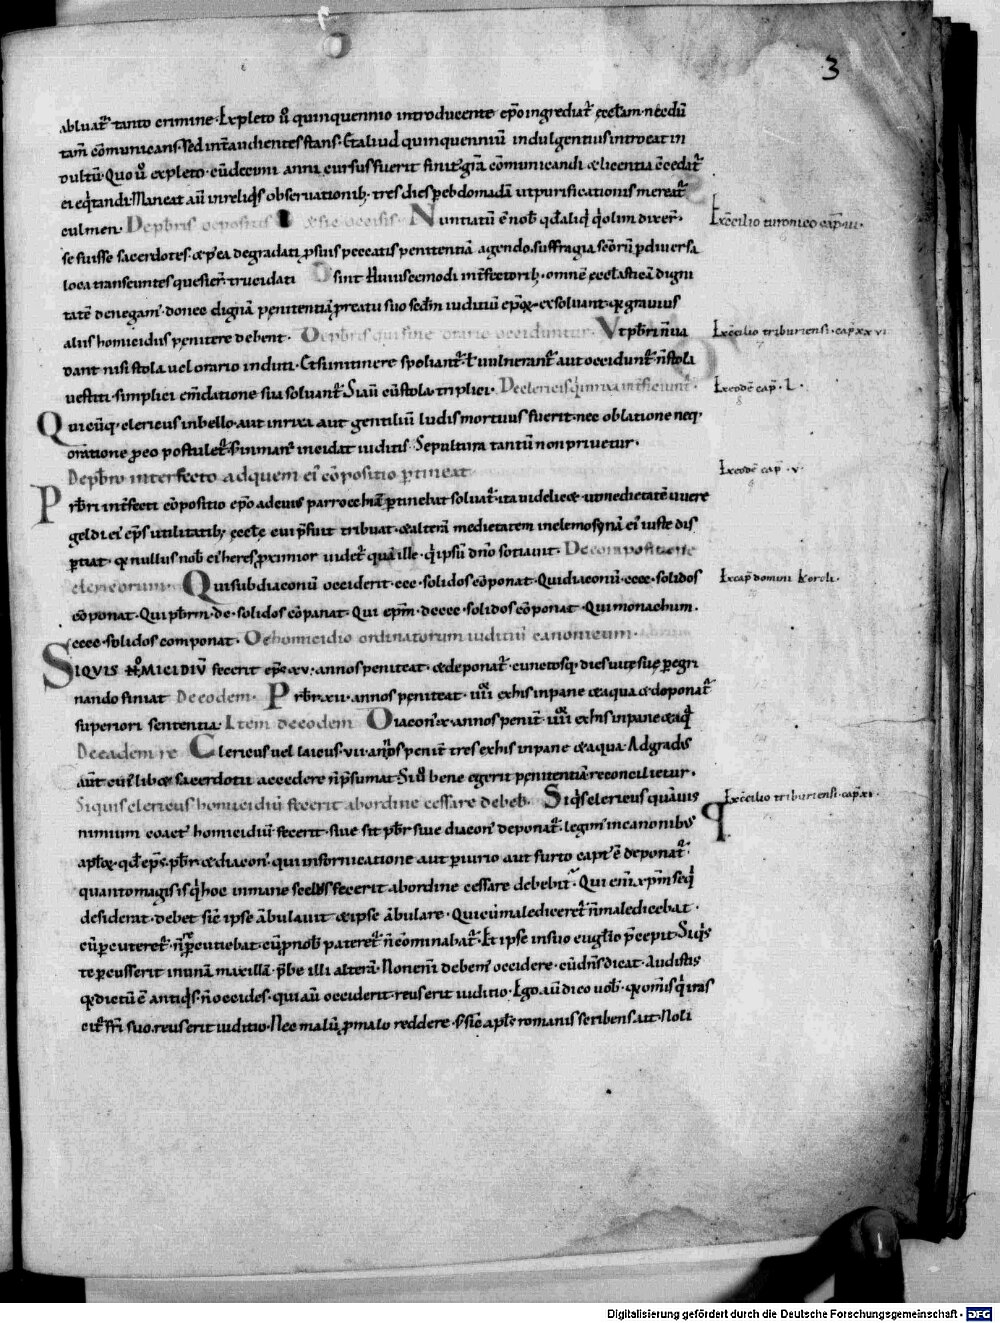 3
abluat᷑ tanto crimine. Expleto ů quinquennio introducente ep̄o ingrediat᷑ ęcclam. necdū
tam̄ cōmunicans. sed int̄ audientes stans. Et aliud quinquenniū indulgentius introeat in
cultū. Quo ů expleto. cū decimi anni cursus fuerit finit᷑ grā cōmunicandi & licentia ē cedat᷑
ei eq̇tandi. Maneat aū in reliq̇s observationib; tres dies p ebdomadā ut purificationis mereat᷑
culmen. De p̄bris Nuntiatū ē nob̄ qd̄ aliq̇ q̇ olim dixer̄
Ex c̄cilio turonico cap̄ iii.
se fuisse sacerdotes. & p ea degradati p suis peccatis penitentiā agendo. suffragia sc̄orū p diversa
loca transeuntes trucidati sint. Huiuscemodi int̄fectorib; omnē ęcclasticā digni
tatē denegam᷑. donec dignā penitentiā p reatu suo sedm̄ iudiciū ep̄oꝝ exsolvant. & gravius
aliis homicidiis penitere debent. De p̄bris qui sine orario occiduntur. Ut p̄bri n̄ va
Ex c̄cilio triburiensi. cap̄ xxvi
dant nisi stola vel orario induti. Et si in itinere spoliant᷑. ł vulnerant᷑ aut occidunt᷑ n̄ stola
vestiti. simplici em̄datione sua solvant᷑. Si aū cū stola. triplici. De clericis q̇ in rixa int̄ficiunt᷑.
Ex eodē cap̄. l.
Quicūq; clericus in bello. aut in rixa aut gentiliū ludis mortuus fuerit. nec oblatione neq;
oratione p eo postulet᷑. s; in man᷑ incidat iudicis. Sepultura tantū non privetur.
De p̄bro interfecto ad quem ei᷑ cōpositio ptineat
Ex eodē cap̄. v.
P̄rbri int̄fecti cōpositio ep̄o ad cuius parrochiā ptinebat solvat᷑. ita videlicet ut medietatē were
geldi ei᷑ ep̄s utilitatib; ęcclę cui p̄fuit tribuat. & alterā medietatem in elemosynā ei᷑ iuste dis
ptiat. q; nullus nob̄ ei᷑ heres proximior videt᷑ quā ille. q̇ ipsū dn̄o sociavit. De compositione
clericorum. Qui subdiaconū occiderit. ccc. solidos cōponat. Qui diaconū. cccc. solidos
Ex cap̄ domni karoli.
cōponat. Qui p̄brm. dc. solidos cōponat. Qui ep̄m. dcccc. solidos cōponat. Qui monachum.
cccc. solidos componat. De homicidio ordinatorum iudiciū canonicum.
SI QVIS HOMICIDIV̄ fecerit ep̄c. xv. annos peniteat. & deponat᷑. cunctosq; dies vitę suę pegri
nando finiat. De eodem. P̄rbr. xii. annos peniteat. iiii ex his in pane & aqua & deponat᷑
superiori sententia. Item de eodem Diacon᷑. x. annos penit̄. iiii ex his in pane & aq̄
De eadem re Clericus vel laicus. vii. annos penit̄ tres ex his in pane & aqua. Ad gradū
aut̄ cui᷑libet sacerdotii accedere n̄ p̄sumat. Si ů bene egerit penitentiā reconcilietur.
Si quis clericus homicidiū fecerit ab ordine cessare debeb̄. Siq̇s clericus quāvis
Ex c̄cilio triburiensi. cap̄ xi.
nimium coact᷑ homicidiū fecerit. sive sit p̄br sive diacon᷑ deponat᷑. legim᷑ in canonibus
aplōꝝ. qd̄ ep̄s. p̄br & diacon᷑. qui in fornicatione aut piurio aut furto capt᷑ ē deponat᷑.
quanto magis is q̇ hoc inmane scelus fecerit ab ordine cessare debebit. Qui enī xp̄m seq̇
desiderat. debet sic̄ ipse ābulavit & ipse ābulare. Qui cū malediceret᷑ n̄ maledicebat.
cū pcuteret᷑. n̄ pcutiebat. cū p nob̄ pateret᷑ n̄ cōminabat᷑. Et ipse in suo evglīo p̄cepit. Siq̇s
te pcusserit in unā maxillā. p̄be illi alterā. Non enī debem᷑ occidere. cū dn̄s dicat. Audistis
q; dictū ē antiq̇s. n̄ occides. qui aū occiderit. reus erit iudicio. Ego aū dico vob̄. q; om̄is q̇ iras
cit᷑ frī suo. reus erit iudicio. Nec malū p malo reddere. s; sic̄ apl̄s romanis scribens ait. Noli
Digitalisierung gefördert durch die Deutsche Forschungsgemeinschaft - DFG